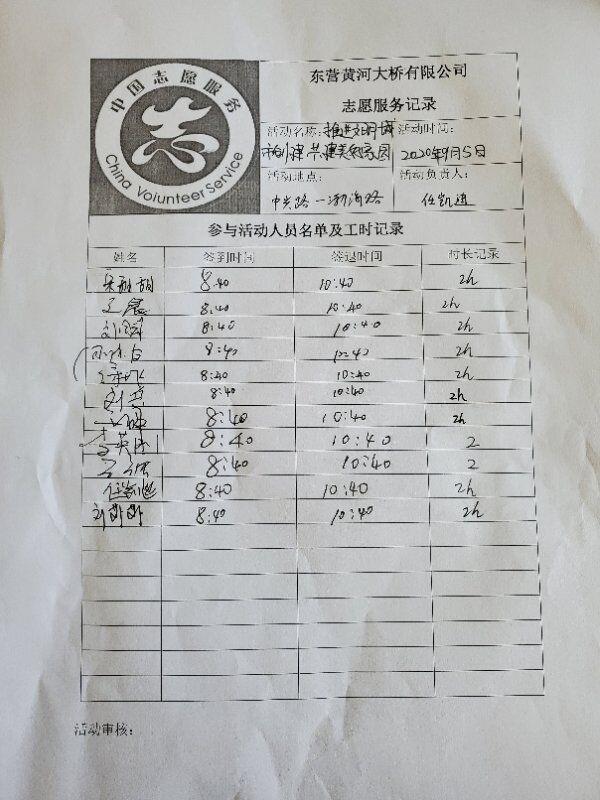 中国志愿服务
志
China Volunteer Service
东营黄河大桥有限公司
志愿服务记录
活动名称: 活动时间:
建美家园 2020年9月5日
活动地点: 活动负责人:
中兴路一渤海路 任凯迪
参与活动人员名单及工时记录
姓名 签到时间 签退时间 时长记录
8:40 10:40 2h
王 8:40 10:40 2h
刘 8:40 10:40 2h
8:40 10:40 2h
8:40 10:40 2h
刘 8:40 10:40 2h
8:40 10:40 2h
李英 8:40 10:40 2
王 8:40 10:40 2
任凯迪 8:40 10:40 2h
刘 8:40 10:40 2h
活动审核: